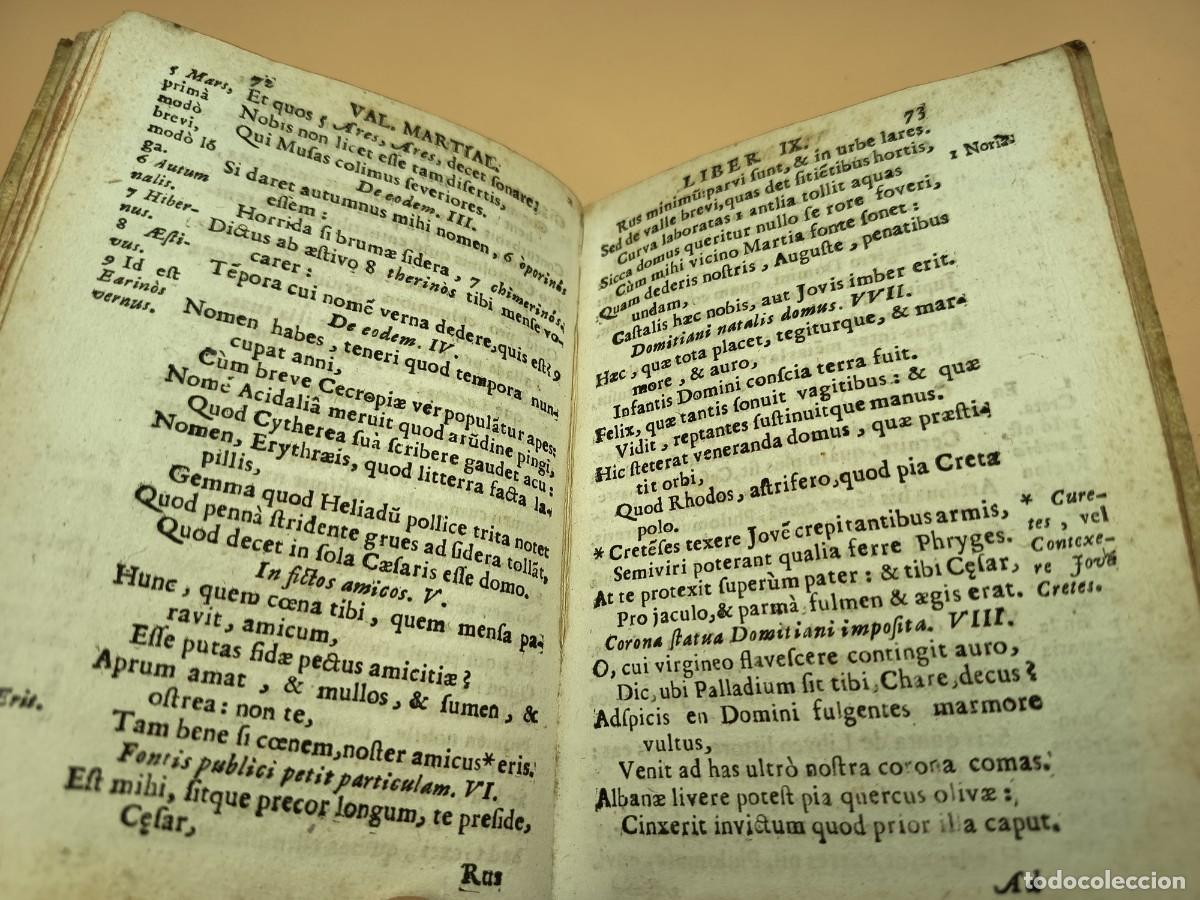 72
VAL. MARTIAL.
5 Mars,
primà
modò
brevi,
modò lõ
ga.
6 Autum
nalis.
7 Hiber-
nus.
8 Æsti-
vus.
9 Id est
Earinòs
vernus.
Et quos 5 Ares, Ares, decet sonare;
Nobis non licet esse tam disertis,
Qui Musas colimus severiores.
De eodem. III.
Si daret autumnus mihi nomen, 6 òporinòs
essem:
Horrida si brumæ sidera, 7 chimerinòs.
Dictus ab æstivo 8 therinòs tibi mense vo-
carer:
Tẽpora cui nomẽ verna dedere, quis est? 9
De eodem. IV.
Nomen habes, teneri quod tempora nun-
cupat anni,
Cùm breve Cecropiæ ver populãtur apes:
Nomẽ Acidaliâ meruit quod arũdine pingi,
Quod Cytherea suà scribere gaudet acu:
Nomen, Erythræis, quod littera facta la-
pillis,
Gemmâ quod Heliadũ pollice trita notet
Quod pennà stridente grues ad sidera tollãt,
Quod decet in sola Cæsaris esse domo.
In fictos amicos. V.
Hunc, quem cœna tibi, quem mensa pa-
ravit, amicum,
Esse putas fidæ pectus amicitiæ?
Aprum amat, & mullos, & sumen, &
ostrea: non te,
Erit.
Tam bene si cœnem, noster amicus* eris.
Fontis publici petit particulam. VI.
Est mihi, sitque precor longum, te præside,
Cęsar,
Rus
LIBER IX.
73
Rus minimũ: parvi sunt, & in urbe lares.
Sed de valle brevi, quas det sitiẽtibus hortis,
Curva laboratas 1 antlia tollit aquas
Sicca domus queritur nullo se rore foveri,
Cùm mihi vicino Martia fonte sonet:
Quam dederis nostris, Auguste, penatibus
undam,
Castalis hæc nobis, aut Jovis imber erit.
1 Noria.
Domitiani natalis domus. VVII.
Hæc, quæ tota placet, tegiturque, & mar-
more, & auro,
Infantis Domini conscia terra fuit.
Felix, quæ tantis sonuit vagitibus: & quæ
Vidit, reptantes sustinuitque manus.
Hic steterat veneranda domus, quæ præsti-
tit orbi,
Quod Rhodos, astrifero, quod pia Creta
polo.
* Cretẽses texere Jovẽ crepitantibus armis,
Semiviri poterant qualia ferre Phryges.
At te protexit superùm pater: & tibi Cęsar,
Pro jaculo, & parmà fulmen & ægis erat.
* Cure-
tes, vel
Contexe-
re Jovẽ
Cretes.
Corona statua Domitiani imposita. VIII.
O, cui virgineo flavescere contingit auro,
Dic, ubi Palladium sit tibi, Chare, decus?
Adspicis en Domini fulgentes marmore
vultus,
Venit ad has ultrò nostra corona comas.
Albanæ livere potest pia quercus olivæ:
Cinxerit invictum quod prior illa caput.
Ad
todocoleccion